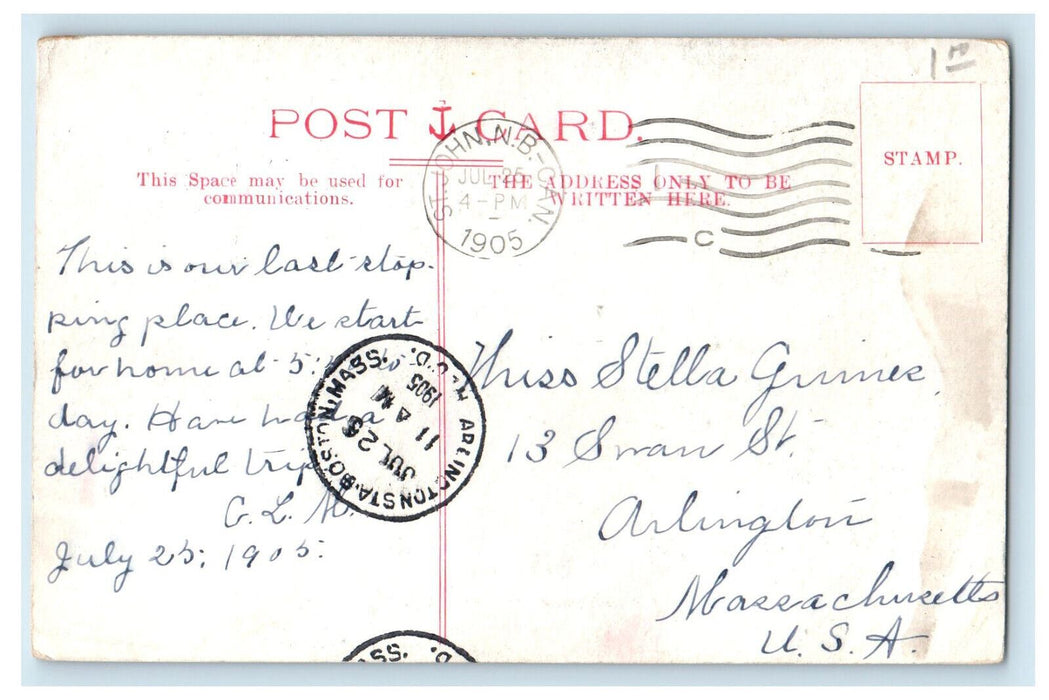 1 00
POST CARD.
STAMP.
This Space may be used for
communications.
THE ADDRESS ONLY TO BE
WRITTEN HERE.
ST. JOHN, N.B.-CAN.
JUL 25
4-PM
1905
C
This is our last stop-
ping place. We start
for home at 5: to
day. Have had a
delightful trip
G. L.
July 25, 1905.
ARLINGTON STA. BOSTON, MASS. REC'D.
JUL 26
11 AM
1905
Miss Stella Grimes
13 Swan St.
Arlington
Massachusetts
U. S. A.